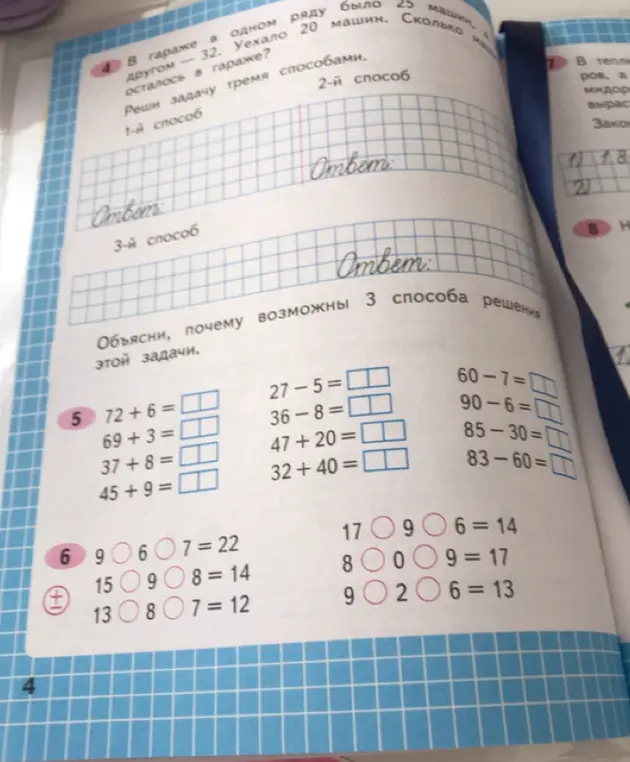 4 В гараже в одном ряду было 25 машин, в
другом — 32. Уехало 20 машин. Сколько
осталось в гараже?
Реши задачу тремя способами.
1-й способ
2-й способ
Ответ:
Ответ:
3-й способ
Ответ:
Объясни, почему возможны 3 способа решения
этой задачи.
5 72 + 6 =
69 + 3 =
37 + 8 =
45 + 9 =
27 − 5 =
36 − 8 =
47 + 20 =
32 + 40 =
60 − 7 =
90 − 6 =
85 − 30 =
83 − 60 =
6 9 ○ 6 ○ 7 = 22
± 15 ○ 9 ○ 8 = 14
13 ○ 8 ○ 7 = 12
17 ○ 9 ○ 6 = 14
8 ○ 0 ○ 9 = 17
9 ○ 2 ○ 6 = 13
4
7 В
ров, а
1) 1 8
2)
8 Н
1)